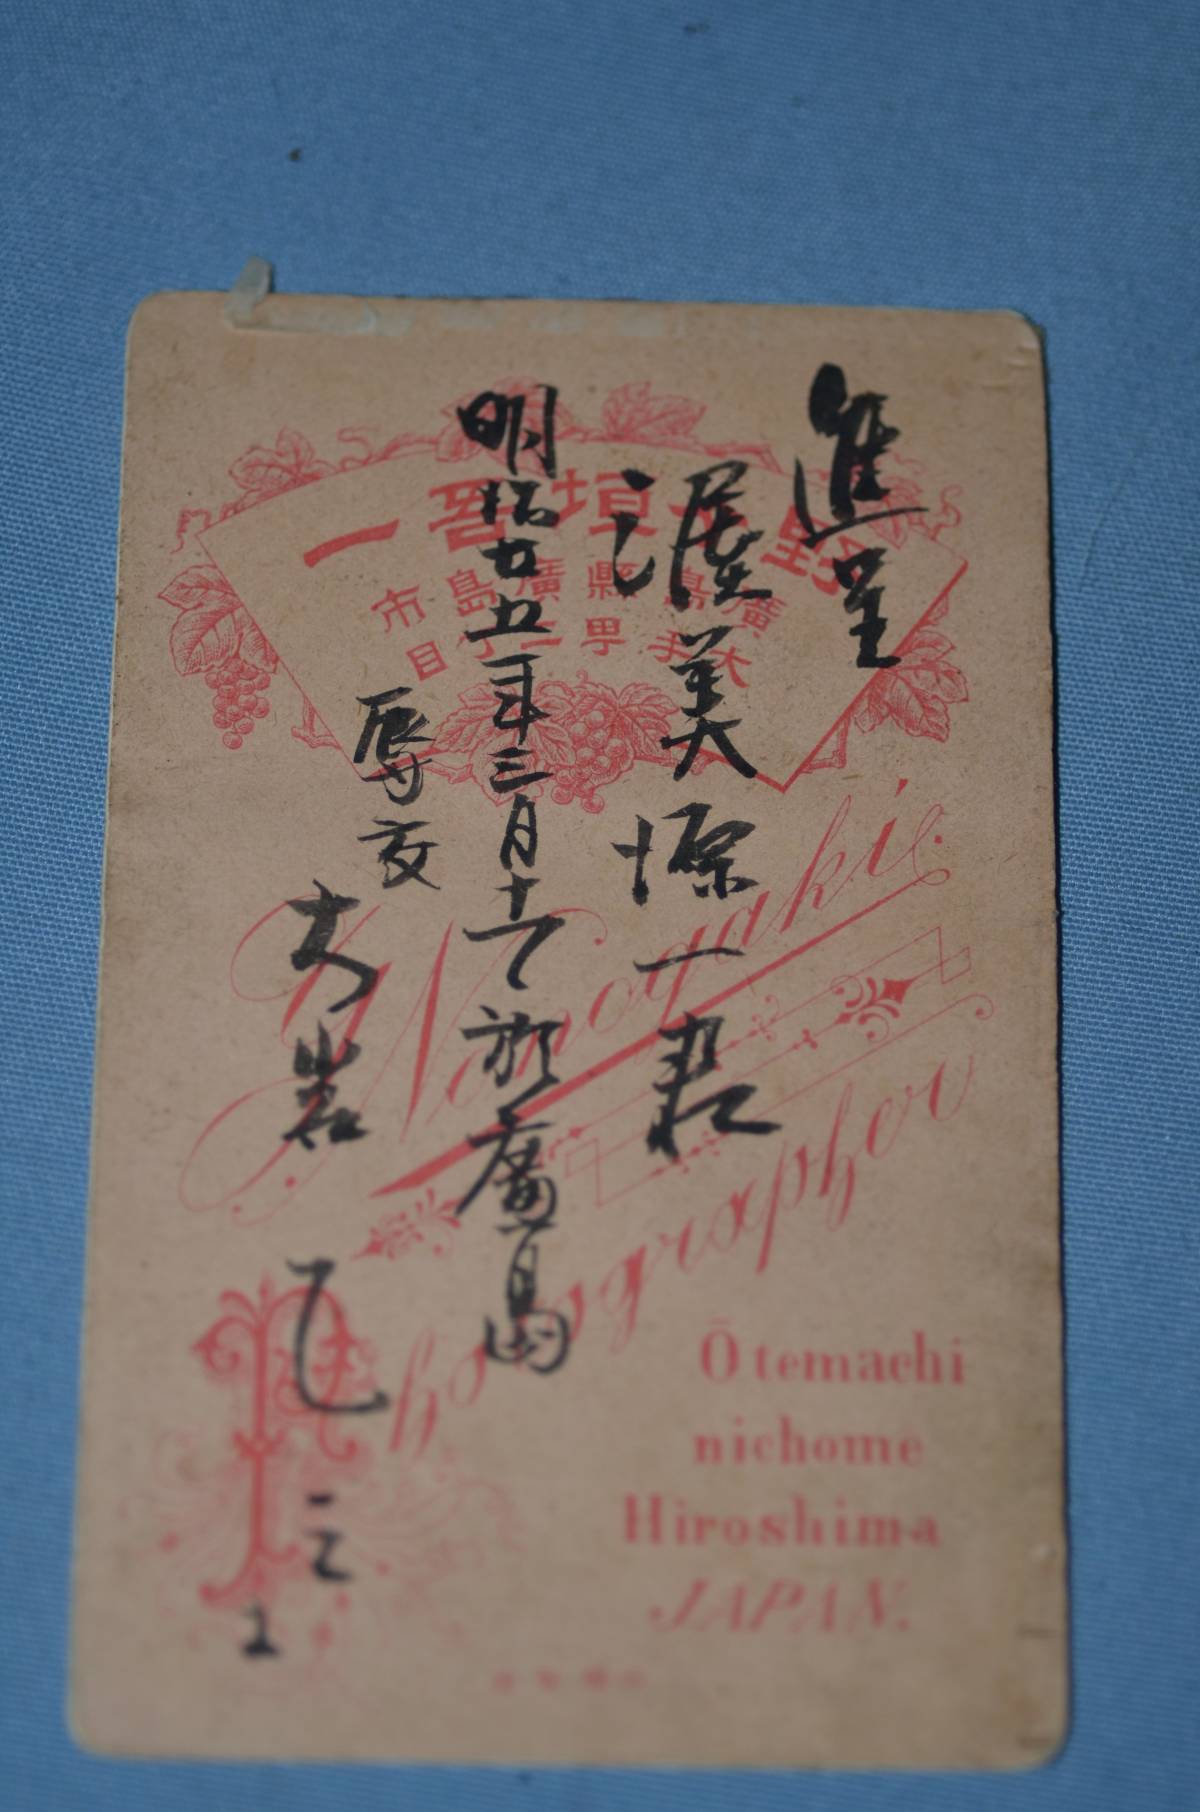 進呈
渥美 一君
明治廿五年三月 於廣島
辱友
大岩乙三
上
野 垣吾一
廣島縣廣島市
大手甼二丁目
Photographer
Ōtemachi
nichome
Hiroshima
JAPAN.